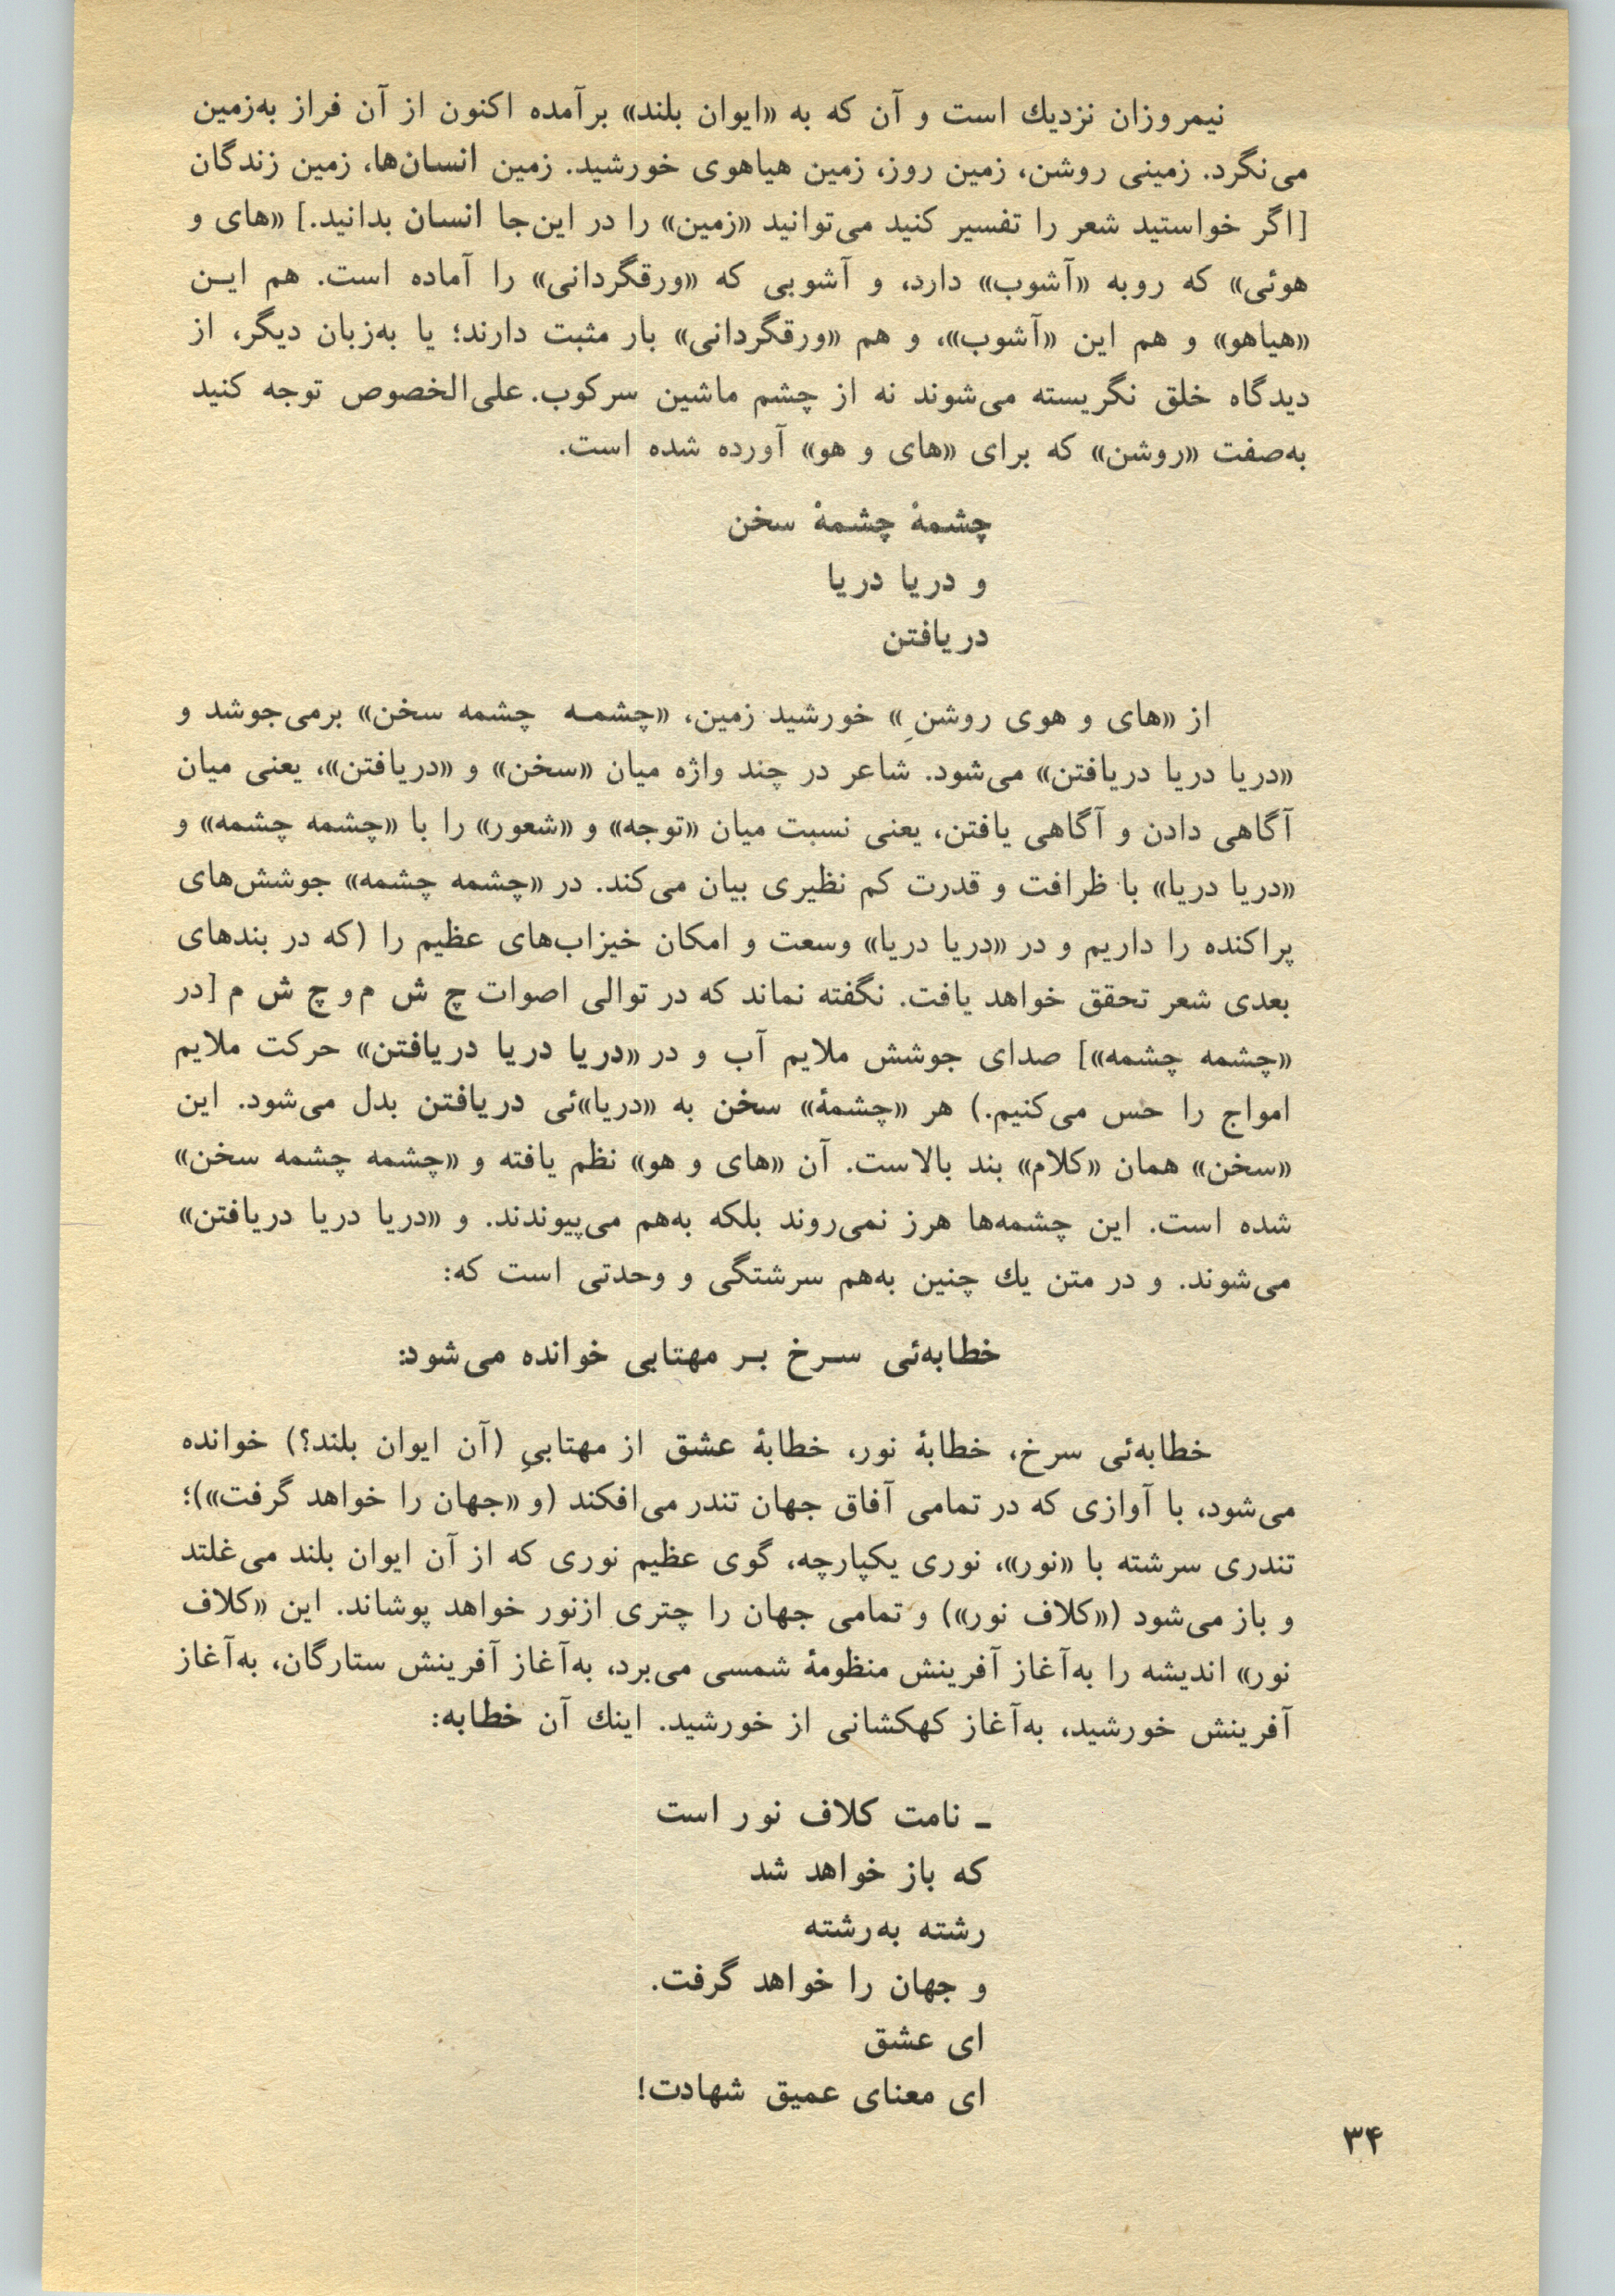 نیمروزان نزدیك است و آن که به «ایوان بلند» برآمده اکنون از آن فراز به‌زمین
می‌نگرد. زمینی روشن، زمین روز، زمین هیاهوی خورشید. زمین انسان‌ها، زمین زندگان
[اگر خواستید شعر را تفسیر کنید می‌توانید «زمین» را در این‌جا انسان بدانید.] «های و
هوئی» که روبه «آشوب» دارد، و آشوبی که «ورقگردانی» را آماده است. هم ایـن
«هیاهو» و هم این «آشوب»، و هم «ورقگردانی» بار مثبت دارند؛ یا به‌زبان دیگر، از
دیدگاه خلق نگریسته می‌شوند نه از چشم ماشین سرکوب. علی‌الخصوص توجه کنید
به‌صفت «روشن» که برای «های و هو» آورده شده است.
چشمهٔ چشمهٔ سخن
و دریا دریا
دریافتن
از «های و هوی روشنِ» خورشید زمین، «چشمـه چشمه سخن» برمی‌جوشد و
«دریا دریا دریافتن» می‌شود. شاعر در چند واژه میان «سخن» و «دریافتن»، یعنی میان
آگاهی دادن و آگاهی یافتن، یعنی نسبت میان «توجه» و «شعور» را با «چشمه چشمه» و
«دریا دریا» با ظرافت و قدرت کم نظیری بیان می‌کند. در «چشمه چشمه» جوشش‌های
پراکنده را داریم و در «دریا دریا» وسعت و امکان خیزاب‌های عظیم را (که در بندهای
بعدی شعر تحقق خواهد یافت. نگفته نماند که در توالی اصوات چ ش م و چ ش م [در
«چشمه چشمه»] صدای جوشش ملایم آب و در «دریا دریا دریافتن» حرکت ملایم
امواج را حس می‌کنیم.) هر «چشمهٔ» سخن به «دریا»ئی دریافتن بدل می‌شود. این
«سخن» همان «کلام» بند بالاست. آن «های و هو» نظم یافته و «چشمه چشمه سخن»
شده است. این چشمه‌ها هرز نمی‌روند بلکه به‌هم می‌پیوندند. و «دریا دریا دریافتن»
می‌شوند. و در متن یك چنین به‌هم سرشتگی و وحدتی است که:
خطابه‌ئی سـرخ بـر مهتابی خوانده می‌شود:
خطابه‌ئی سرخ، خطابهٔ نور، خطابهٔ عشق از مهتابیِ (آن ایوان بلند؟) خوانده
می‌شود، با آوازی که در تمامی آفاق جهان تندر می‌افکند (و «جهان را خواهد گرفت»)؛
تندری سرشته با «نور»، نوری یکپارچه، گوی عظیم نوری که از آن ایوان بلند می‌غلتد
و باز می‌شود («کلاف نور») و تمامی جهان را چتری ازنور خواهد پوشاند. این «کلاف
نور» اندیشه را به‌آغاز آفرینش منظومهٔ شمسی می‌برد، به‌آغاز آفرینش ستارگان، به‌آغاز
آفرینش خورشید، به‌آغاز کهکشانی از خورشید. اینك آن خطابه:
ـ نامت کلاف نور است
که باز خواهد شد
رشته به‌رشته
و جهان را خواهد گرفت.
ای عشق
ای معنای عمیق شهادت!
۳۴